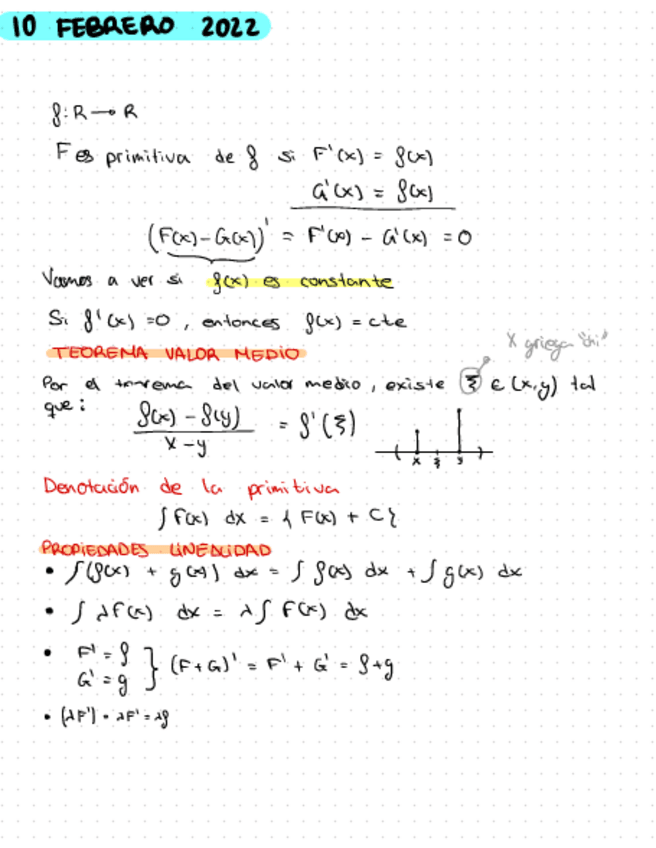 10 FEBRERO 2022
f: R → R
F es primitiva de f si F'(x) = f(x)
G'(x) = f(x)
(F(x) - G(x))' = F'(x) - G'(x) = 0
Vamos a ver si f(x) es constante
Si f'(x) = 0, entonces f(x) = cte
X griega "chi"
TEOREMA VALOR MEDIO
Por el teorema del valor medio, existe ξ ∈ (x,y) tal
que:
f(x) - f(y) / x - y = f'(ξ)
x ξ y
Denotación de la primitiva
∫ f(x) dx = { F(x) + C }
PROPIEDADES LINEALIDAD
• ∫ (f(x) + g(x)) dx = ∫ f(x) dx + ∫ g(x) dx
• ∫ λf(x) dx = λ ∫ f(x) dx
• F' = f
G' = g } (F+G)' = F' + G' = f+g
• (λF') = λF' = λf